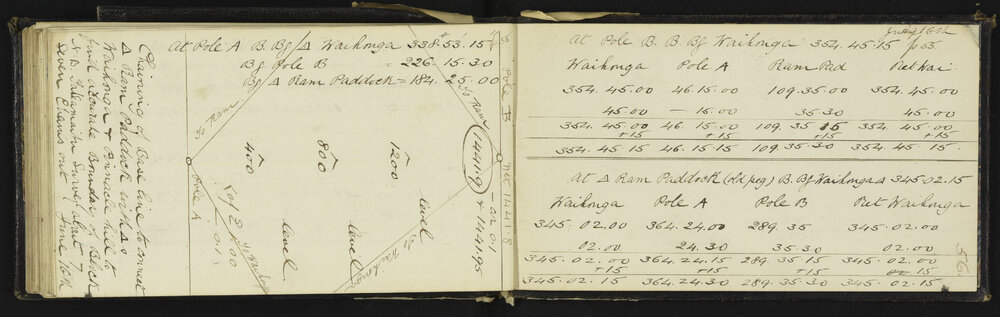 Chaining of Base line to connect
Δ Ram Paddock with Δ
Waihonga & Pinnacle Hill &
with Boundary of Block
Survey start 7
seven Chains out June 16th
At Pole A B. Bg Δ Waihonga 338° 53' 15"
Bg Pole B = 226. 15. 30
Bg Δ Ram Paddock = 184. 25. 00
To Ram
To Ram
Pole A
400
800
1200
level
level
level
14419
& 14419.5
Pole B
To Waihonga
July 16th
p 55
At Pole B. B. Bg Waihonga 354. 45. 15
Waihonga Pole A Ram Pad Ret Wai
354. 45. 00 46. 15. 00 109. 35. 00 354. 45. 00
45. 00 — 15. 00 35. 30 45. 00
354. 45. 00 46. 15. 00 109. 35 15 354 45. 00
+15 +15 +15 +15
354. 45. 15 46. 15. 15 109. 35. 30 354 45 15
At Δ Ram Paddock (old peg) B. Bg Waihonga Δ 345. 02. 15
Waihonga Pole A Pole B Ret Waihonga
345. 02. 00 364. 24. 00 289. 35 345. 02. 00
02. 00 24. 30 35. 30 02. 00
345. 02. 00 364. 24. 15 289. 35. 15 345. 02. 00
+15 +15 +15 15
345. 02. 15 364. 24. 30 289. 35. 30 345. 02. 15
56